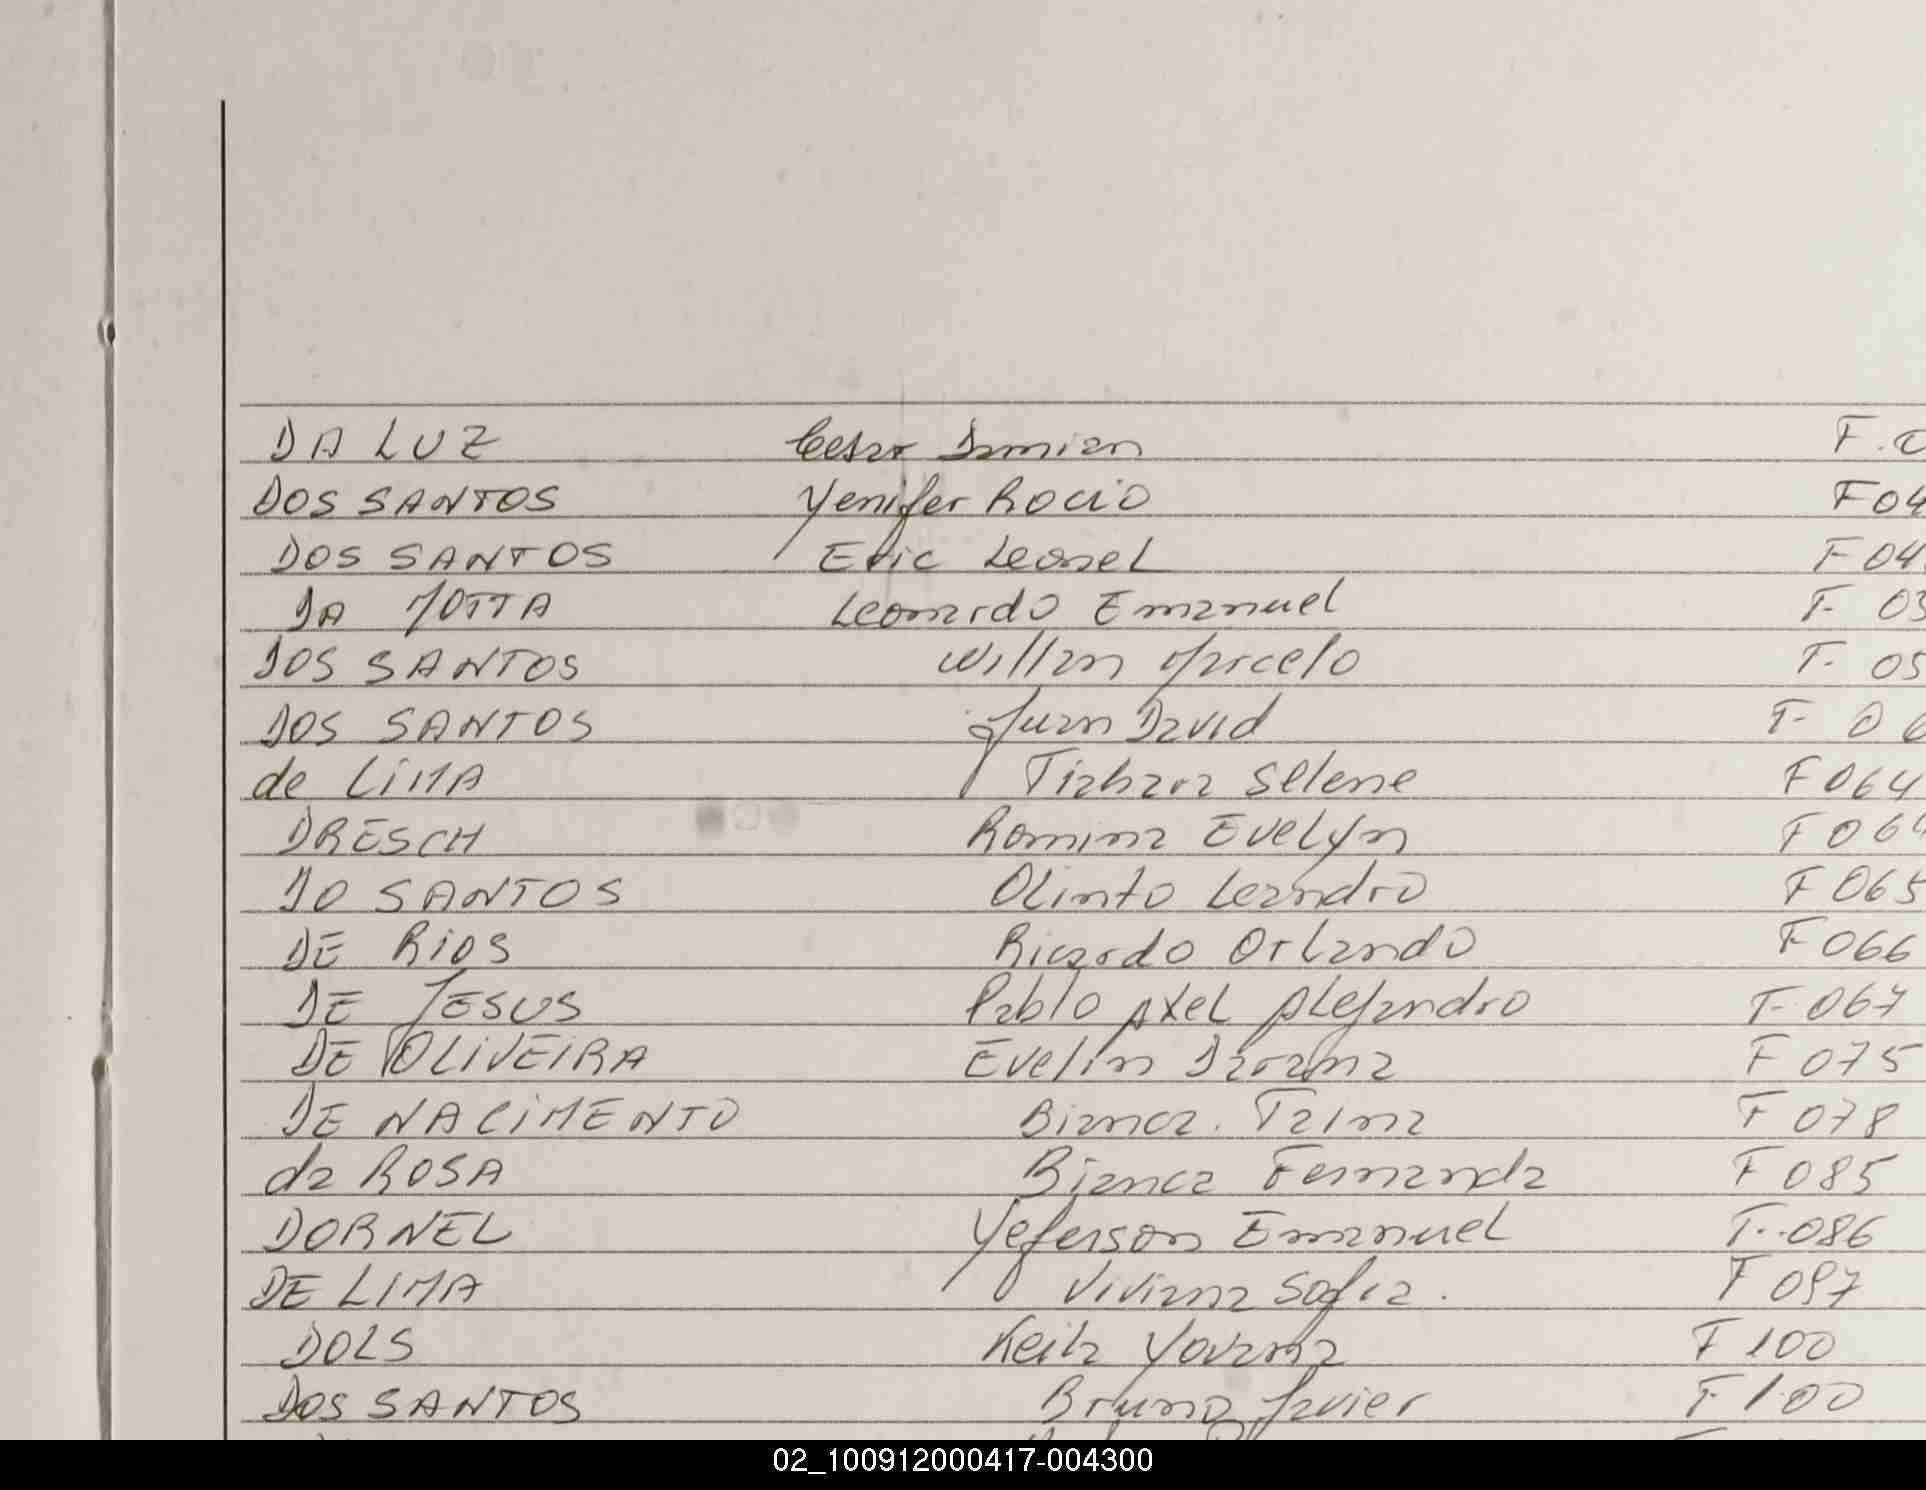 DA LUZ Cesar Damian F.
DOS SANTOS Yenifer Rocio F04
DOS SANTOS Eric Leonel F04
DA MOTTA Leonardo Emanuel F 03
DOS SANTOS Willan Marcelo F. 05
DOS SANTOS Juan David F 06
de LiMA Selene F064
DRESCH Romina Evelyn F 06
DO SANTOS Olinto Leandro F 065
DE RiOS Ricardo Orlando F 066
DE JESUS Pablo Axel Alejandro F 067
DE OLiVEiRA Evelin Daiana F 075
DE NACiMENTO Bianca. Taina F 078
da ROSA Bianca Fernanda F 085
DORNEL Yeferson Emanuel F..086
DE LIMA Viviana Sofia. F 097
DOLS Keila Yovana F 100
DOS SANTOS Bruno Javier F 100
02_100912000417-004300